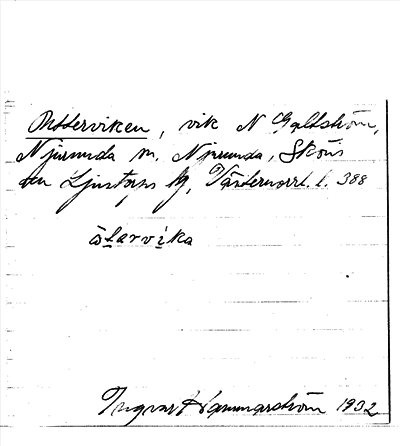 Ostterviken, vik N Galtström,
Njurunda sn, Njurunda, Sköns
Ljustorps tg, Västernorrl. l. 388
ò̲larvi̲ka
Ingvar Hammarström 1932